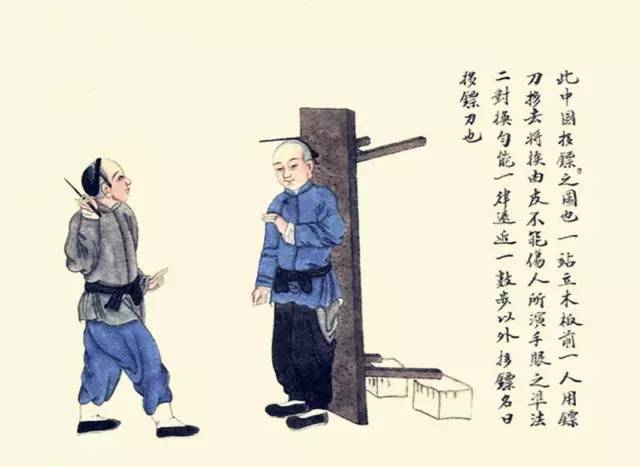 此中國扔鏢之圖也一站立木板前一人用鏢
刀扔去將挨由皮不能傷人所演手眼之準法
二對換勻能一律遠近一數步以外扔鏢名曰
扔鏢刀也